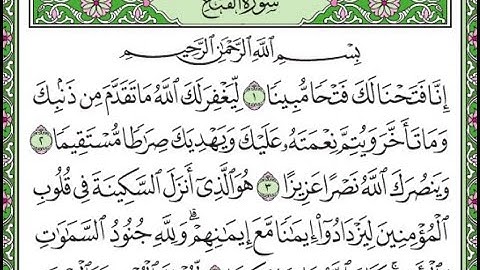 سُورَةُ الفَتْحِ
بِسْمِ اللَّهِ الرَّحْمَٰنِ الرَّحِيمِ
إِنَّا فَتَحْنَا لَكَ فَتْحًا مُّبِينًا ١ لِّيَغْفِرَ لَكَ اللَّهُ مَا تَقَدَّمَ مِن ذَنۢبِكَ
وَمَا تَأَخَّرَ وَيُتِمَّ نِعْمَتَهُۥ عَلَيْكَ وَيَهْدِيَكَ صِرَٰطًا مُّسْتَقِيمًا ٢
وَيَنصُرَكَ اللَّهُ نَصْرًا عَزِيزًا ٣ هُوَ الَّذِىٓ أَنزَلَ السَّكِينَةَ فِى قُلُوبِ
الْمُؤْمِنِينَ لِيَزْدَادُوٓا۟ إِيمَٰنًا مَّعَ إِيمَٰنِهِمْ ۗ وَلِلَّهِ جُنُودُ السَّمَٰوَٰتِ